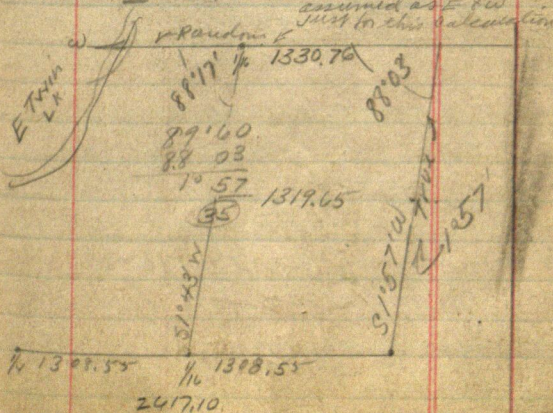 assumed as E & W
just for this calculation
W Random E
1/16 1330.76
E Twin
Lk
88°17'
88°03
89°60
88 03
1° 57
35 1319.65
S1°43'W
S1°57'W
True
1°57'
1/4 1308.55 1/16 1308.55
2617.10